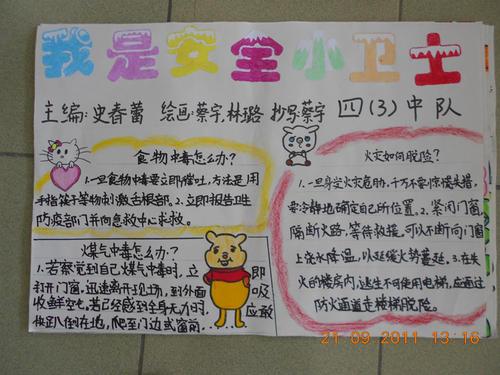 我是安全小卫士
主编:史春蕾 绘画:蔡宇,林璐 抄写:蔡宇 四(3)中队
食物中毒怎么办?
1.一旦食物中毒要立即催吐,方法是用
手指筷子等物刺激舌根部。2.立即报告卫生
防疫部门并向急救中心求救。
煤气中毒怎么办?
1.若察觉到自己煤气中毒时,立即
打开门窗,迅速离开现场,到外面吸
收鲜空气,若已经感到全身无力时,应敢
快趴倒在地,爬至门边或窗前...
火灾如何脱险?
1.一旦身空火灾危胁,千万不要惊慌失措,
要冷静地确定自己所位置。2.紧闭门窗
隔断火路,等待救援。可以不断向门窗
上浇水降温,以延缓火势蔓延。3.在失
火的楼房内,逃生不可使用电梯,应通过
防火通道走楼梯脱险。
21 09 2011 13:16